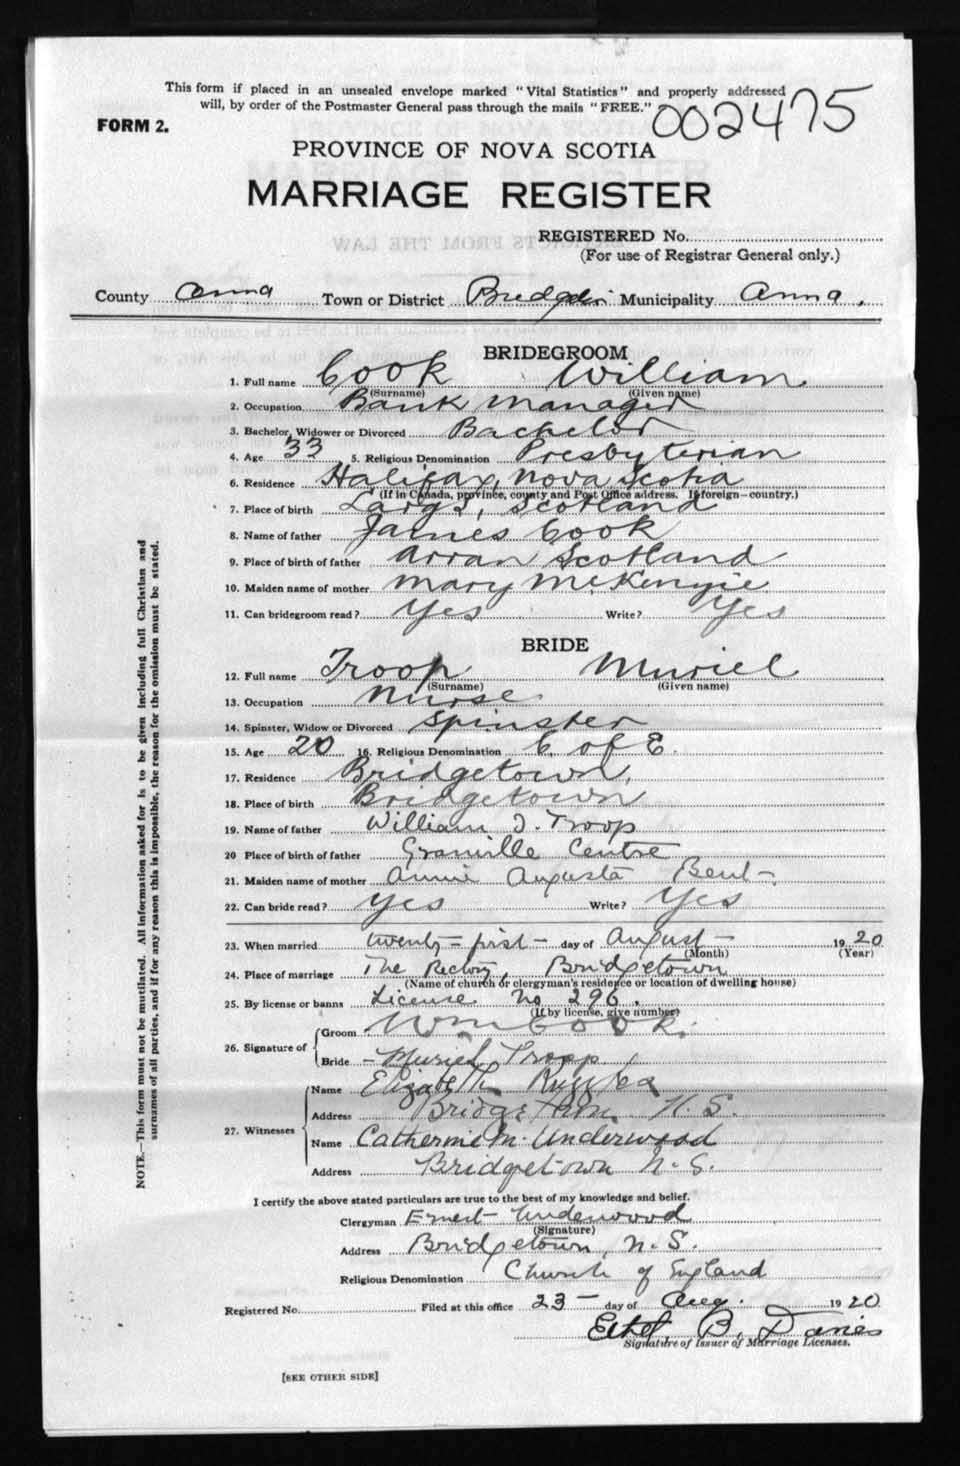 This form if placed in an unsealed envelope marked "Vital Statistics" and properly addressed
will, by order of the Postmaster General pass through the mails "FREE."
002475
FORM 2.
PROVINCE OF NOVA SCOTIA
MARRIAGE REGISTER
EXTRACTS FROM THE LAW
REGISTERED No.
(For use of Registrar General only.)
County Anna Town or District Municipality Anna.
BRIDEGROOM
1. Full name Cook William
(Surname) (Given name)
2. Occupation Bank Manager
3. Bachelor, Widower or Divorced Bachelor
4. Age 33 5. Religious Denomination Presbyterian
6. Residence Halifax, Nova Scotia
(If in Canada, province, county and Post Office address. If foreign—country.)
7. Place of birth Largs, Scotland
8. Name of father James Cook
9. Place of birth of father Arran Scotland
10. Maiden name of mother Mary McKenzie
11. Can bridegroom read? Yes Write? Yes
BRIDE
12. Full name Troop Muriel
(Surname) (Given name)
13. Occupation Nurse
14. Spinster, Widow or Divorced Spinster
15. Age 20 16. Religious Denomination C. of E.
17. Residence Bridgetown,
18. Place of birth Bridgetown
19. Name of father William I. Troop
20 Place of birth of father Granville Centre
21. Maiden name of mother Annie Augusta Bent-
22. Can bride read? Yes Write? Yes
23. When married twenty-first- day of August- 1920
(Month) (Year)
24. Place of marriage The Rectory, Bridgetown
(Name of church or clergyman's residence or location of dwelling house)
25. By license or banns License No 296.
(If by license, give number)
26. Signature of Groom Wm Cook.
Bride - Muriel Troop
27. Witnesses Name Elizabeth
Address Bridgetown N.S.
Name Catherine M. Underwood
Address Bridgetown N.S.
I certify the above stated particulars are true to the best of my knowledge and belief.
Clergyman Ernest Underwood
(Signature)
Address Bridgetown, N.S.
Religious Denomination Church of England
Registered No. Filed at this office 23- day of Aug. 1920
B. Davies
Signature of Issuer of Marriage Licenses.
[SEE OTHER SIDE]
NOTE.—This form must not be mutilated. All information asked for is to be given including full Christian and
surnames of all parties, and if for any reason this is impossible, the reason for the omission must be stated.